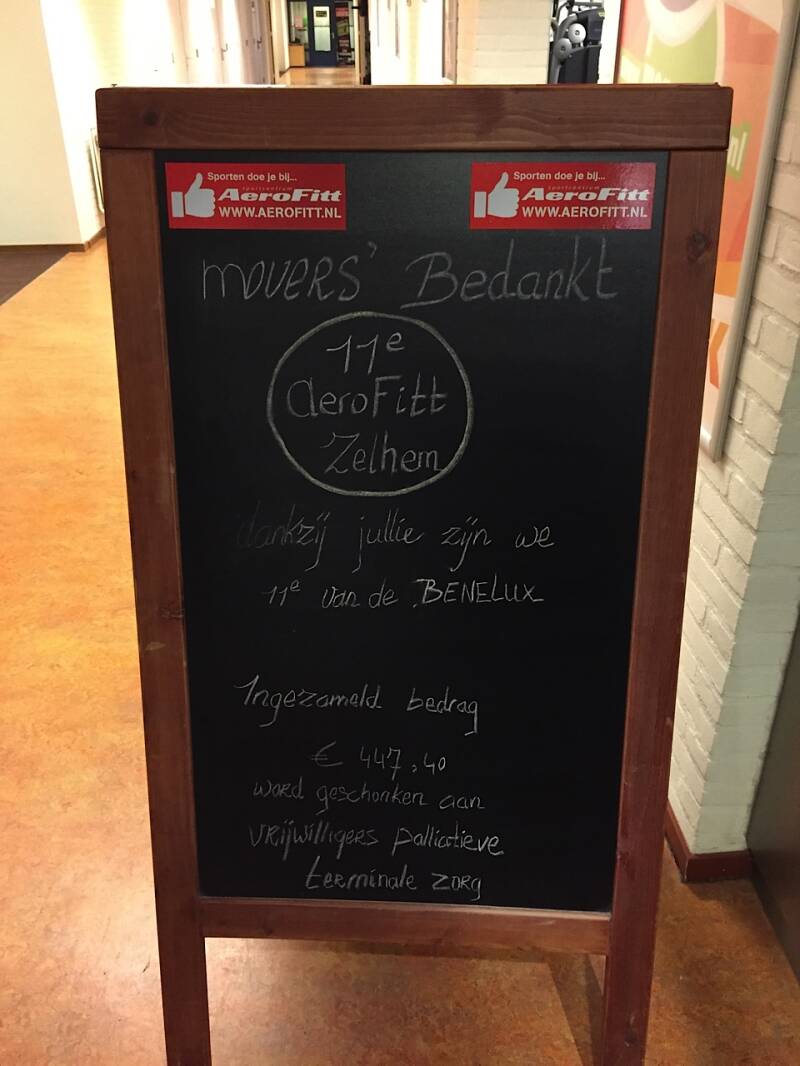 Sporten doe je bij...
sportcentrum
AeroFitt
WWW.AEROFITT.NL
Sporten doe je bij...
sportcentrum
AeroFitt
WWW.AEROFITT.NL
MOVERS' Bedankt
11e
aeroFitt
Zelhem
dankzij jullie zijn we
11e van de BENELUX
Ingezameld bedrag
€ 447,40
word geschonken aan
VRIJWILLIGERS palliatieve
terminale zorg